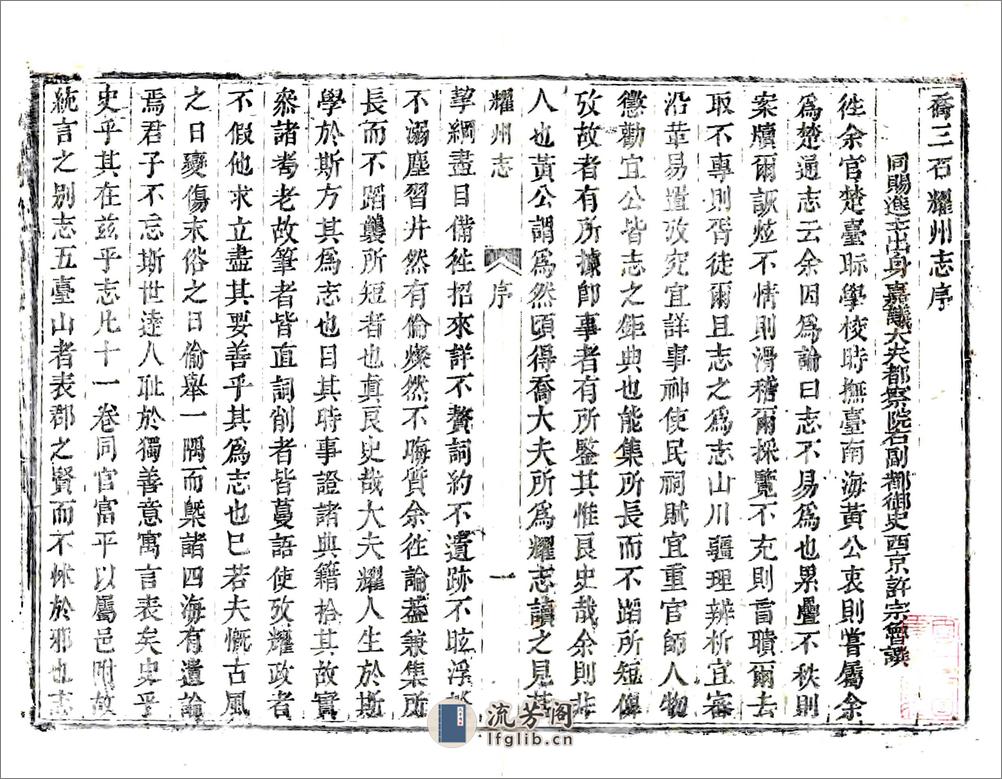 喬三石耀州志序
同賜進士出身嘉議大夫都察院右副都御史西京許宗魯譔
徃余官楚臺眎學校時撫臺南海黃公衷則嘗屬余
爲楚通志云余因爲論曰志不易爲也累疊不秩則
案牘爾詼炫不情則滑稽爾採覽不充則盲聵爾去
取不專則胥徒爾且志之爲志山川疆理辨析宜審
沿革易置攷究宜詳事神使民祠賦宜重官師人物
懲勸宜公皆志之鉅典也能集所長而不蹈所短俾
攷故者有所據師事者有所鑒其惟良史哉余則非
人也黃公謂爲然頃得喬大夫所爲耀志讀之見其
耀州志
序
一
挈綱盡目備徃招來詳不贅詞約不遺跡不眩浮
不溺塵習井然有倫燦然不晦質余徃論葢兼集所
長而不蹈襲所短者也真良史哉大夫耀人生於斯
學於斯方其爲志也日其時事證諸典籍拾其故實
叅諸耆老故筆者皆直詞削者皆蔓語使攷耀政者
不假他求立盡其要善乎其爲志也巳若夫慨古風
之日變傷末俗之日偷舉一隅而槩諸四海有遺論
焉君子不忘斯世逹人耻於獨善意寓言表矣史乎
史乎其在兹乎志凡十一卷同官富平以屬邑附故
統言之别志五臺山者表郡之賢而不怵於邪也志
流芳阁
lfglib.cn